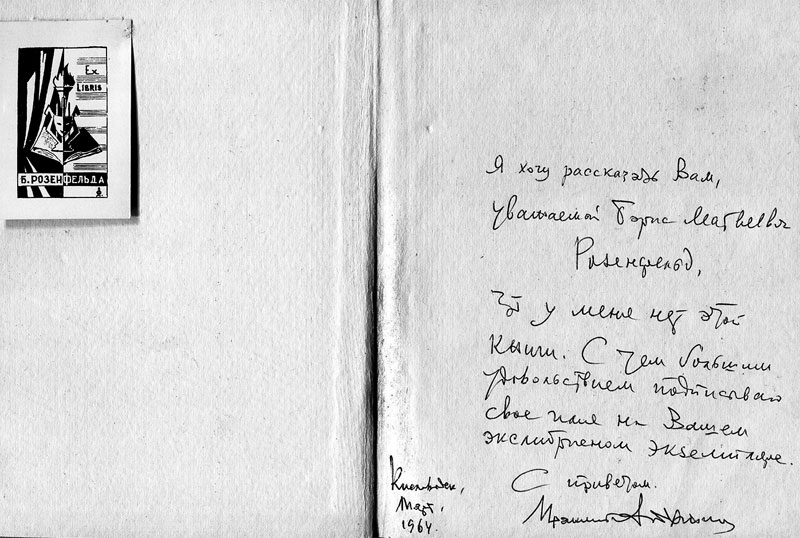 Ex
LIBRIS
Б. РОЗЕНФЕЛЬДА
Я хочу рассказать Вам,
уважаемой Борис Матвеевич
Розенфельд,
что у меня нет этой
книги. С тем большим
удовольствием подписываю
свое имя на Вашем
экслибрисном экземпляре.
С приветом.
Ираклий Андроников
Кисловодск,
Март,
1964.